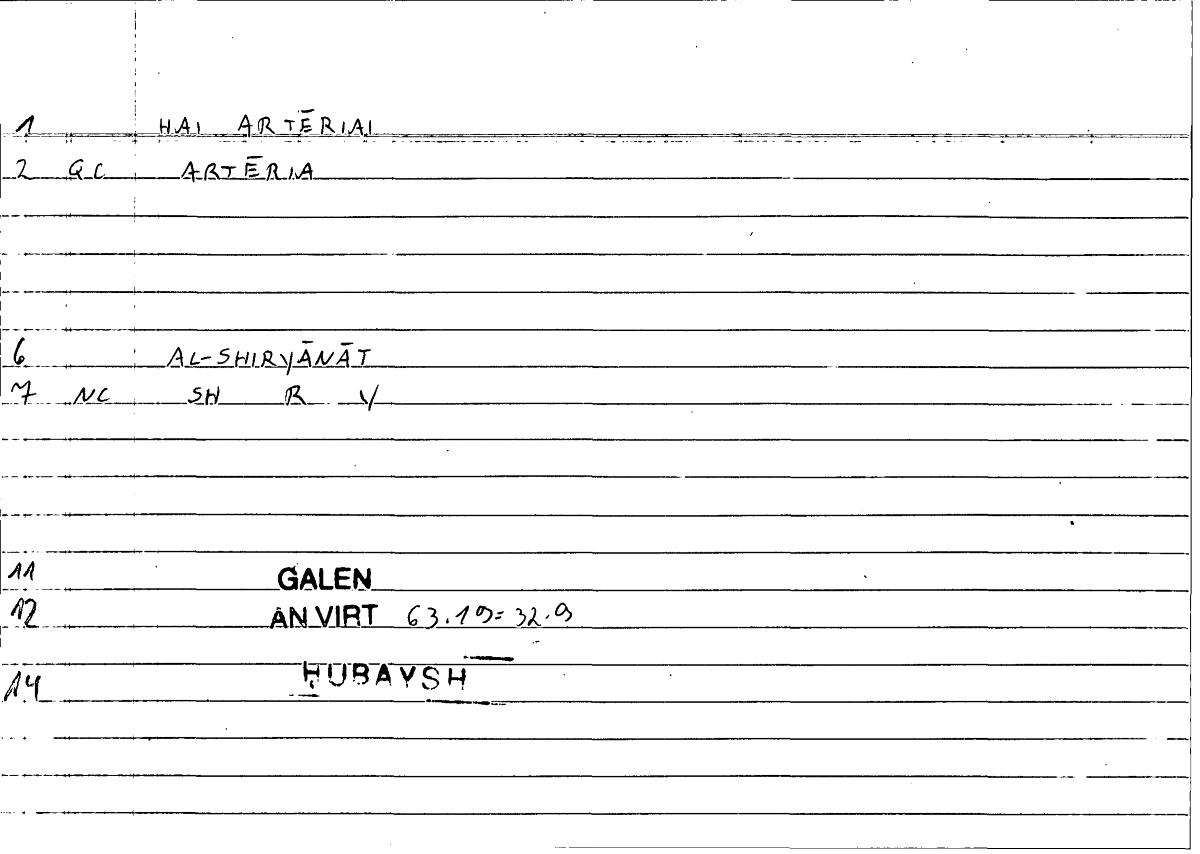 1 HAI ARTĒRIAI
2 GC ARTĒRIA
6 AL-SHIRYĀNĀT
7 NC SH R Y
11 GALEN
12 AN VIRT 63.19=32.9
14 ḤUBAYSH